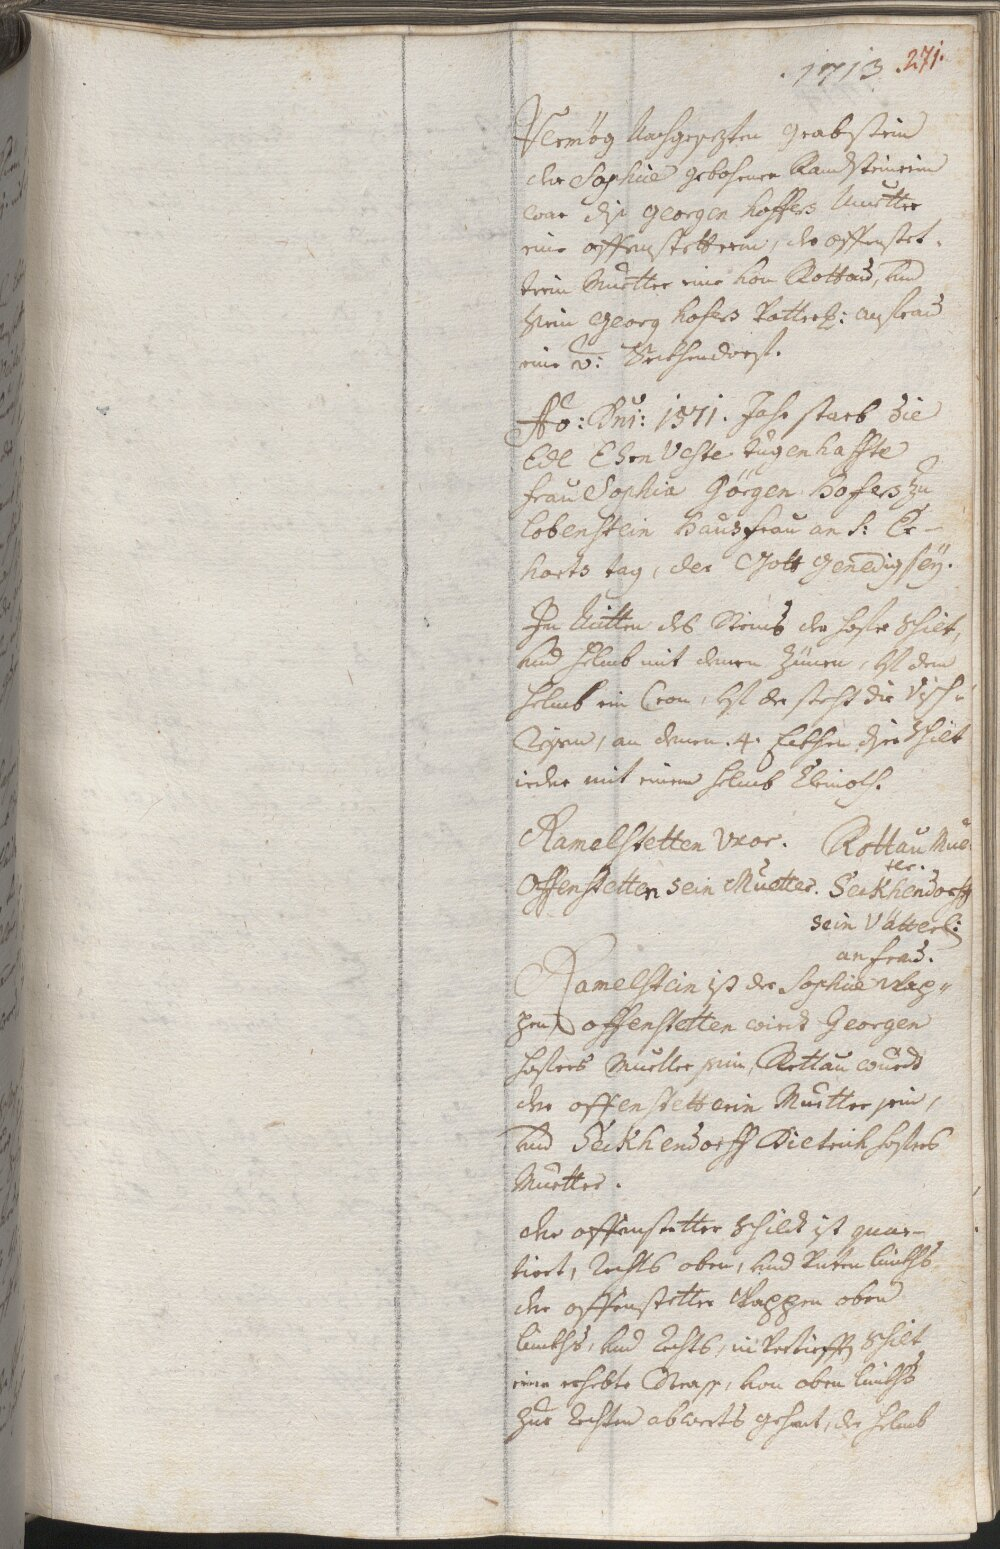 .1713. .271.
Vermög Nachgesezten Grabstein
der Sophiæ gebohrner Ramelsteinerin
war dises Georgen Hoffers Muetter
eine Offenstetterin, der Offenstet-
terin Muetter eine von Rottau, und
sein Georg Hofers Vatterl: Anfrau
eine v: Seckhendorf.
Ao: Dni: 1571. Jahr starb die
Edl Ehrn Veste tugenhaffte
frau Sophia Görgen Hofers zu
Lobenstein Hausfrau an S: Er-
harts tag, der Gott Genedig sey.
In Mitten des Steins der Hofer Schilt,
und Helmb mit denen Zünen, auf dem
Helmb ein Cron, auf der steht die Visch-
Reisen, an denen .4. Eckhen drei Schilt
ieder mit einem Helmb Kleinoth.
Ramelstetten Uxor. Rottau Mue-
ter.
Offenstetten sein Muetter. Seckhendorff
sein Vätterl:
anfrau.
Ramelstein ist der Sophiæ Wap-
pen, Offenstetten wird Georgen
Hofers Muetter sein, Rottau wurdt
der Offenstetterin Muetter sein,
und Seckhendorff Dietrich Hofers
Muetter.
der Offenstetter Schildt ist quar-
tiert, rechts oben, und Unten linckhs
der Offenstetter Wappen oben
linckhs, und rechts, in Schilt
eine erhebte Strass, von oben linckhs
zur rechten abwerts gehent, der Helmb